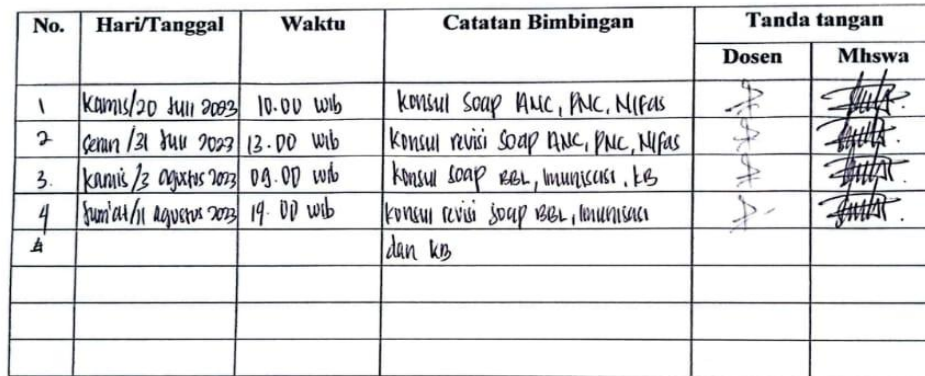 No. Hari/Tanggal Waktu Catatan Bimbingan Tanda tangan
Dosen Mhswa
1 Kamis/20 Juli 2023 10.00 wib Konsul Soap ANC, PNC, Nifas
2 Senin/31 Juli 2023 13.00 wib Konsul revisi Soap ANC, PNC, Nifas
3. Kamis/3 agustus 2023 09.00 wib Konsul Soap BBL, Imunisasi, KB
4 Jum'at/11 Agustus 2023 19.00 wib Konsul revisi Soap BBL, Imunisasi
dan KB